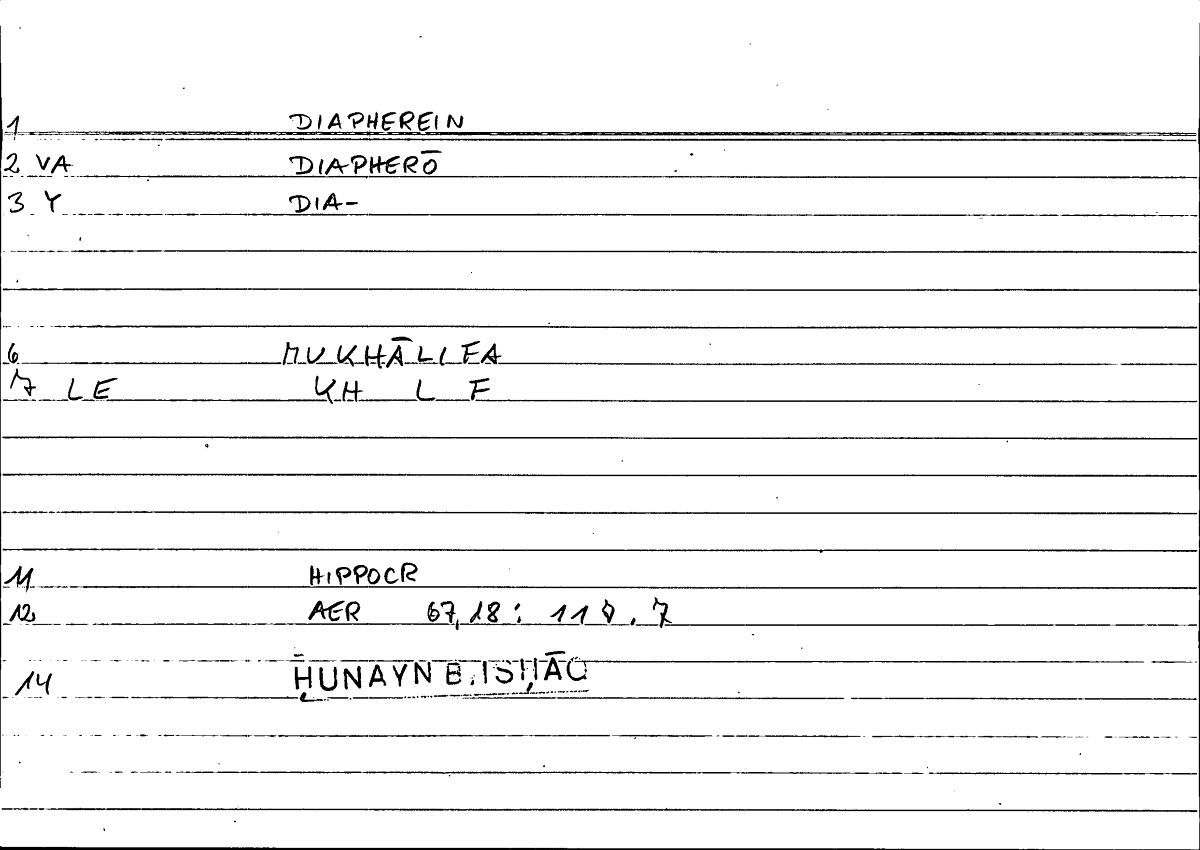 1 DIAPHEREIN
2 VA DIAPHERŌ
3 Y DIA-
6 MUKHĀLIFA
7 LE KH L F
11 HIPPOCR
12 AER 67,18 :
14 ḤUNAYN B. ISḤĀQ